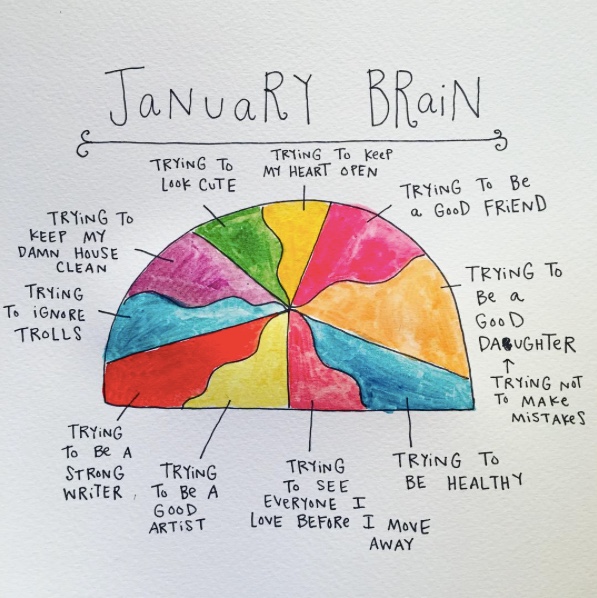 JaNuaRY BRaiN
TRYiNG TO
LOOK CUTE
TRYiNG TO KeeP
MY HEART OPEN
TRYiNG TO Be
a GOOD FRIEND
TRYING TO
KEEP MY
DAMN HOUSE
CLEAN
TRYING
TO iGNORE
TROLLS
TRYING TO
Be a
GOOD
DAUGHTER
TRYING NOT
TO MaKe
MiSTaKeS
TRYING
TO BE A
STRONG
WRiTER
TRYING
TO BE A
GOOD
ARTIST
TRYING
TO SEE
EVERYONE I
LOVE BEFORE I MOVE
AWAY
TRYING TO
BE HEALTHY